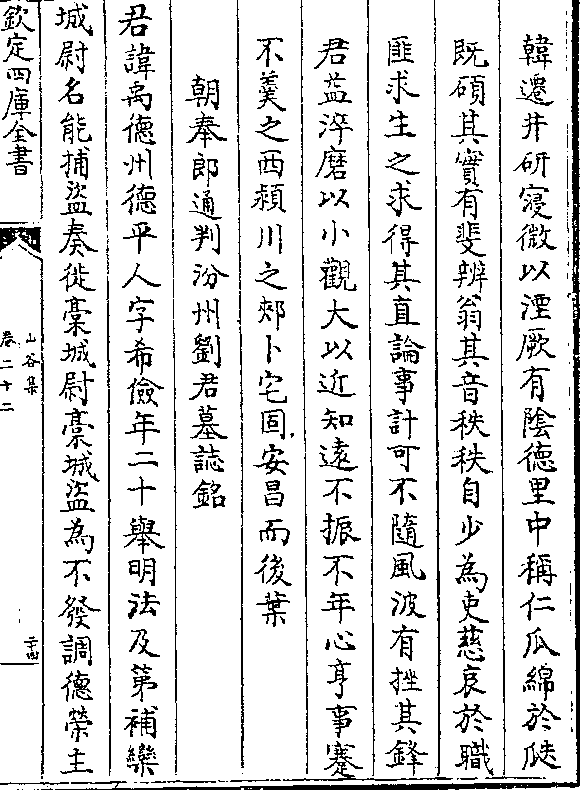 韓遷井研寖微以湮厥有陰德里中稱仁瓜綿於瓞
既碩其實有斐辨翁其音秩秩自少為吏慈哀於職
匪求生之求得其直論事計可不隨風波有挫其鋒
君益淬磨以小觀大以近知遠不振不年心亨事蹇
不羮之西潁川之郟卜宅固安昌而後葉
朝奉郎通判汾州劉君墓誌銘
君諱禹德州德平人字希儉年二十舉明法及第補欒
城尉名能捕盜奏徙藁城尉藁城盜為不發調德榮主
欽定四庫全書
山谷集
卷二十二
二十四